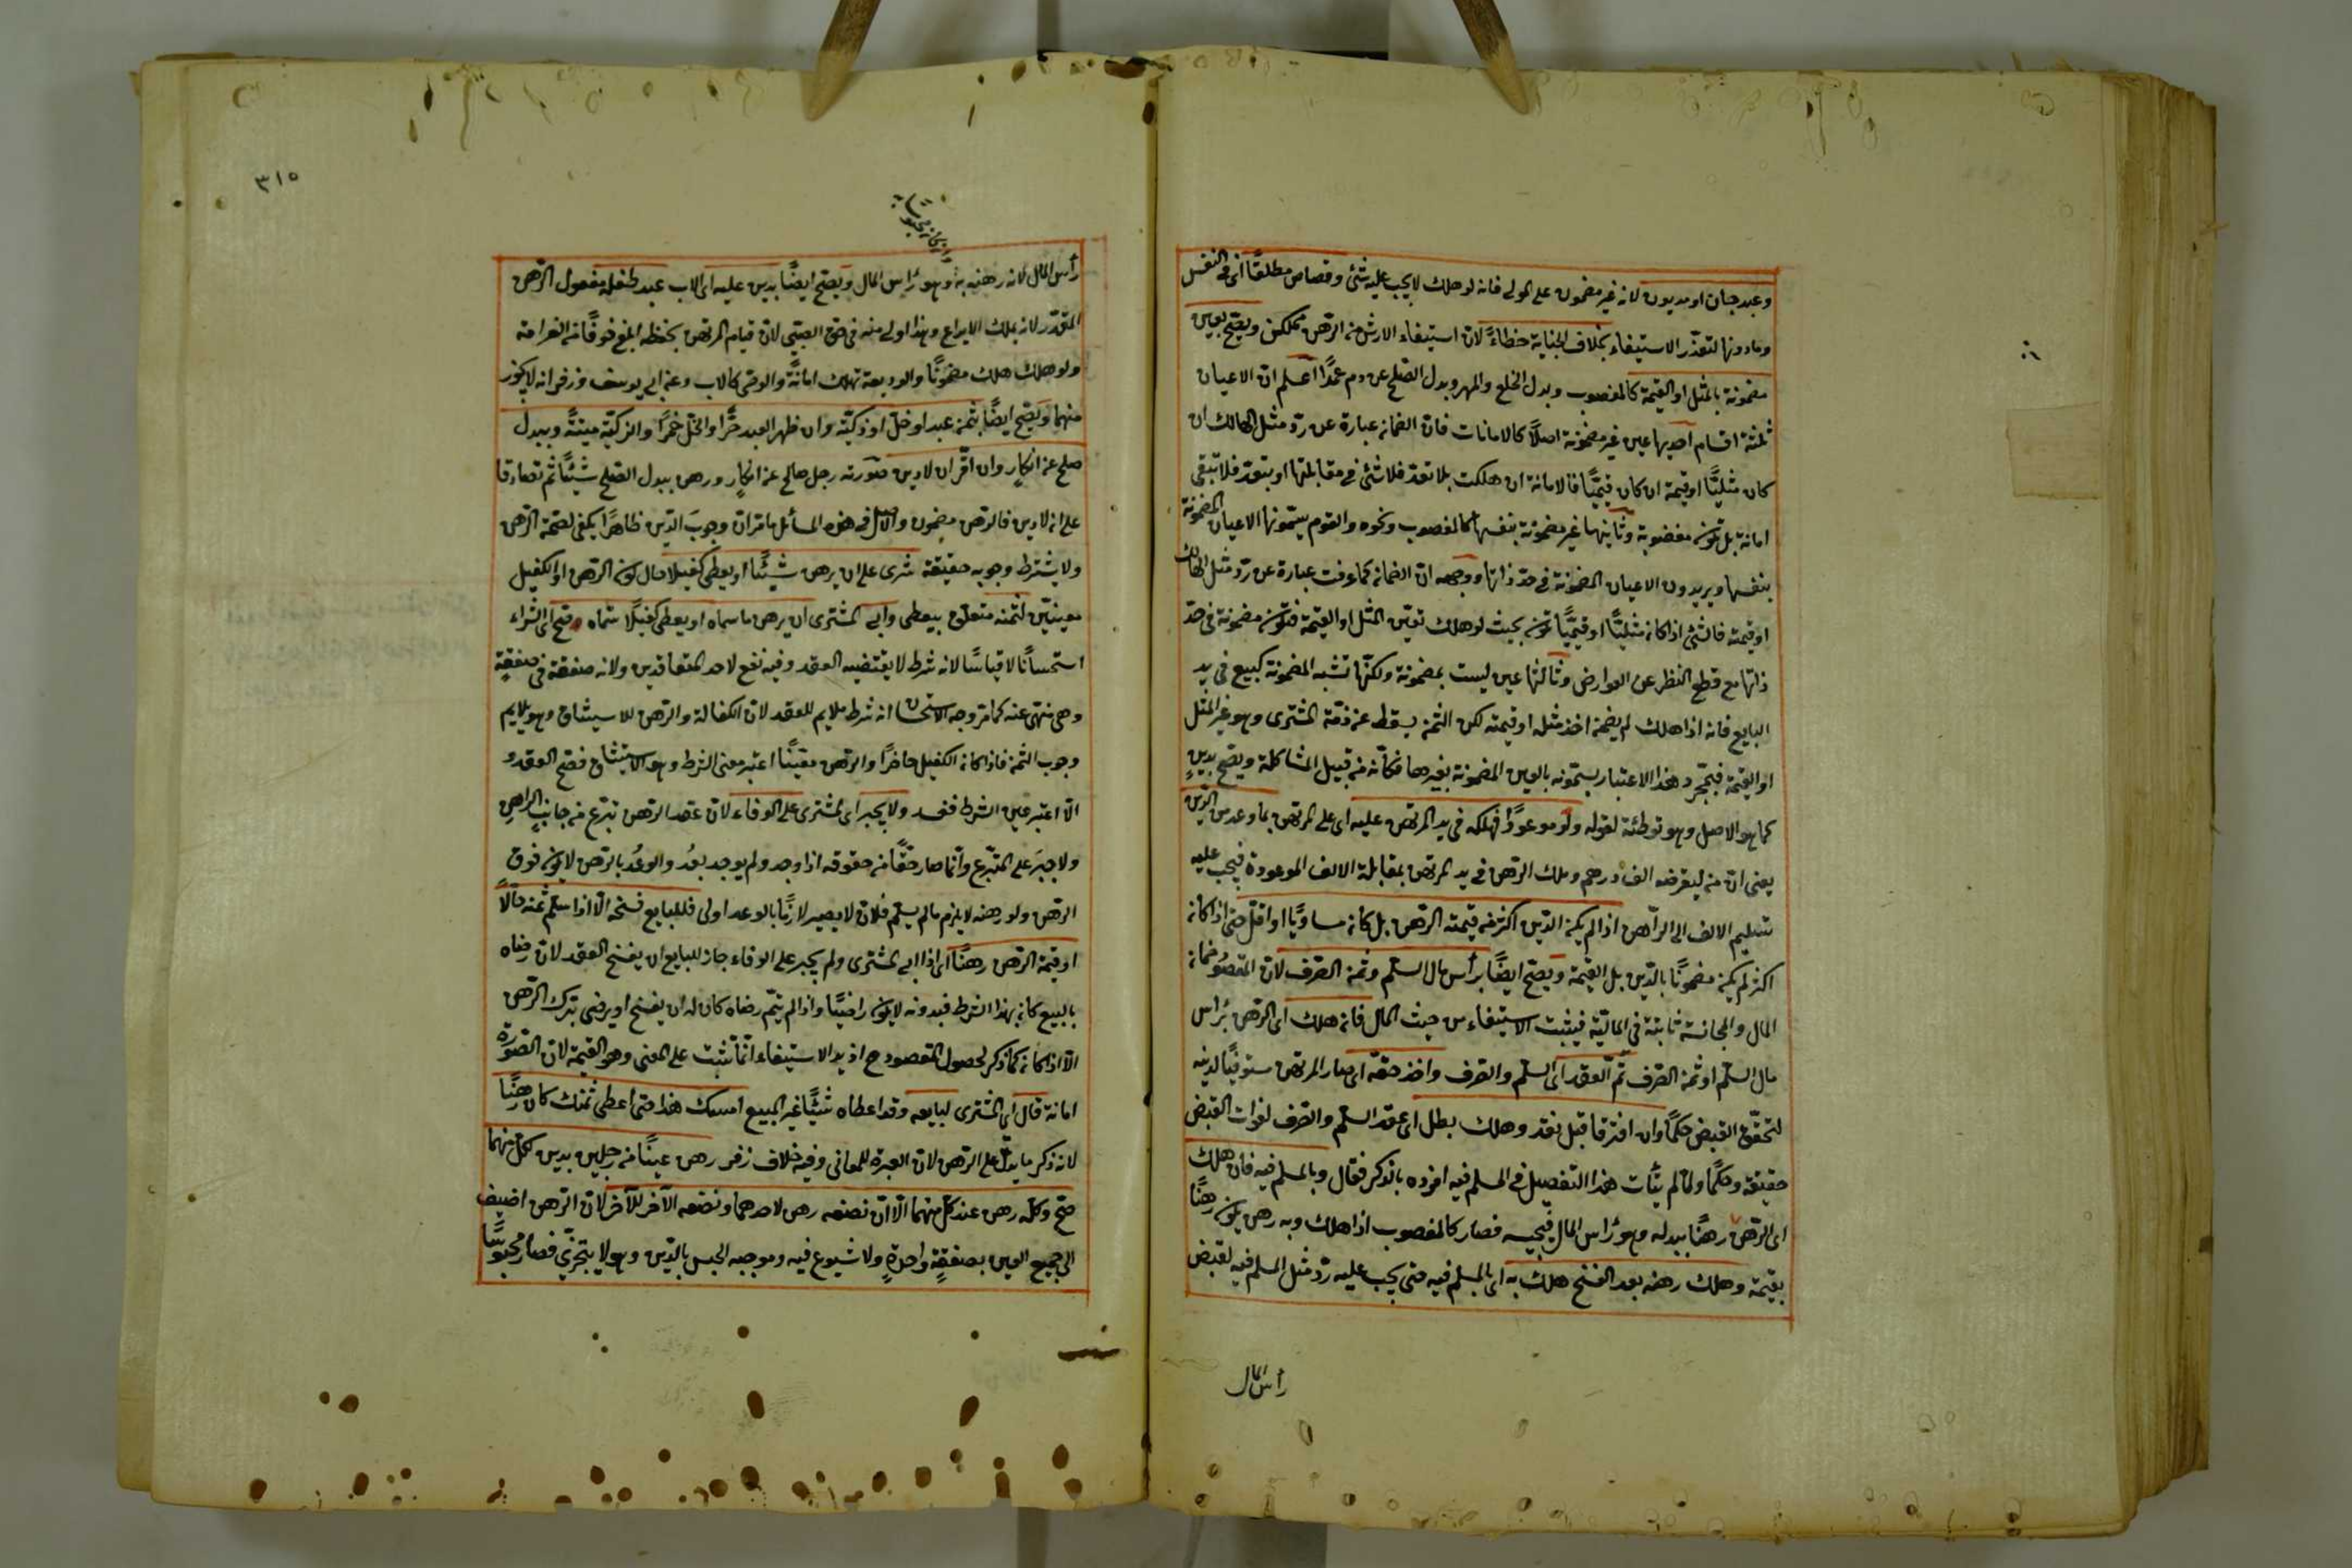 وعبد جان او مديون لانه غير مضمون على المولى فانه لو هلك لا يجب عليه شئ وقصاص مطلقًا اى فى النفس
وما دونها لتعذّر الاستيفاء بخلاف الجناية خطاءً لانّ استيفاء الارش من الرّهن ممكن ويصحّ بعين
مضمونة بالمثل او القيمة كالمغصوب وبدل الخلع والمهر وبدل الصّلح عن دم عمدًا اعلم انّ الاعيان
ثلثة اقسام احديها عين غير مضمونة اصلًا كالامانات فانّ الضمان عبارة عن ردّ مثل الهالك ان
كان مثليًّا او قيمة ان كان قيميًّا فالامانة ان هلكت بلا تعدّ فلا شئ فى مقابلتها او بتعدّ فلا تبقى
امانة بل تكون مغصوبة وثانيها غير مضمونة بنفسها كالمغصوب ونحوه والقوم يسمّونها الاعيان المضمونة
بنفسها ويريدون الاعيان المضمونة فى حدّ ذاتها ووجهه انّ الضمان كما عرفت عبارة عن ردّ مثل الهالك
او قيمته فالشئ اذا كان مثليًّا او قيميًّا تكون بحيث لو هلك تعيّن المثل او القيمة فتكون مضمونة فى حدّ
ذاتها مع قطع النظر عن العوارض وثالثها عين ليست بمضمونة ولكنّها تشبه المضمونة كبيع فى يد
البايع فانه اذا هلك لم يضمن احد مثله او قيمته لكن الثمن يسقط عن ذمّة المشترى وهو غير المثل
او القيمة فبمجرّد هذا الاعتبار يسمّونه بالعين المضمونة بغيرها فكأنّه من قبيل المشاكلة ويصحّ بدينٍ
كما هو الاصل وهو توطئة لقوله ولو موعودًا فهلكه فى يد المرتهن عليه اى على المرتهن بما وعد من الدّين
يعنى ان رهن ليقرضه الف درهم وهلك الرّهن فى يد المرتهن بمقابلة الالف الموعودة فيجب عليه
تسليم الالف الى الرّاهن اذا لم يكن الدّين اكثر من قيمة الرّهن بل كان مساويًا او اقلّ حتى اذا كان
اكثر لم يكن مضمونًا بالدّين بل القيمة ويصحّ ايضًا برأس مال السّلم وثمن الصّرف لانّ المقصود ضمان
المال والمجانسة ثابتة فى الماليّة فيثبت الاستيفاء من حيث المال فان هلك اى الرّهن برأس
مال السّلم او ثمن الصّرف تمّ العقد اى السّلم والصّرف واخذ حقّه اى صار المرتهن مستوفيًا لدينه
لتحقّق القبض حكمًا وان افترقا قبل نقد وهلك بطل اى عقد السّلم والصّرف لفوات القبض
حقيقة وحكمًا ولمّا لم يتأت هذا التفصيل فى المسلم فيه افرده بالذكر فقال وبالمسلم فيه فان هلك
اى الرّهن رهنًا ببدله وهو رأس المال فيحبسه فصار كالمغصوب اذا هلك وبه رهن يكون رهنًا
بقيمة وهلك رهنه بعد الفسخ هلك به اى بالمسلم فيه حتى يجب عليه ردّ مثل المسلم فيه لقبض
رأس المال
٣١٥
رأس المال لانه رهنه به وهو رأس المال ويصحّ ايضًا بدين عليه اى الاب عبد طفله مفعول الرّهن
المقدّر لانه يملك الايداع وهذا اولى منه فى حقّ الصّبى لانّ قيام المرتهن بحفظه ابلغ خوفًا من الغرامة
ولو هلك هلك مضمونًا والوديعة تهلك امانةً والوصى كالاب وعن ابى يوسف وزفر انه لا يجوز
منهما ويصحّ ايضًا بثمن عبد او خلّ او ذكيّة وان ظهر العبد حرًّا والخلّ خمرًا والذكيّة ميتةً وببدل
صلح عن انكارٍ وان اقرّ ان لا دين صورته رجل صالح عن انكارٍ ورهن ببدل الصّلح شيئًا ثم تصادقا
على ان لا دين فالرّهن مضمون والاصل فى هذه المسائل ما مرّ انّ وجوبَ الدّين ظاهرًا يكفى لصحّة الرّهن
ولا يشترط وجوبه حقيقة شرى على ان يرهن شيئًا او يعطى كفيلا حال كون الرّهن او الكفيل
معينيّن لثمنه متعلّق بيعطى وابى المشترى ان يرهن ما سماه او يعطى كفيلًا سمّاه صحّ اى الشراء
استحسانًا لا قياسًا لانه شرط لا يقتضيه العقد وفيه نفع لاحد المتعاقدين ولانه صفقة فى صفقةٍ
وهى منهى عنه كما مرّ وجه الاستحسان انه شرط ملايم للعقد لانّ الكفالة والرّهن للاستيثاق وهو يلايم
وجوب الثمن فاذا كان الكفيل حاضرًا والرّهن معيّنًا اعتبر معنى الشرط وهو الاستيثاق فصحّ العقد و
الّا اعتبر عين الشرط ففسد ولا يجبر اى المشترى على الوفاء لانّ عقد الرّهن تبرّع من جانب الراهن
ولا جبرَ على المتبرّع وانّما صار حقًّا من حقوقه اذا وجد ولم يوجد بعُد والوعُد بالرّهن لا يكون فوق
الرّهن ولو رهنه لا يلزم ما لم يسلّم فلان لا يصير لازمًا بالوعد اولى فللبايع فسخه الّا اذا سلّم ثمنه حالًا
او قيمة الرّهن رهنًا اى اذا ابى المشترى ولم يجبر على الوفاء جاز للبايع ان يفسخ العقد لانّ رضاه
بالبيع كان بهذا الشرط فبدونه لا يكون راضيًا واذا لم يتمّ رضاه كان له ان يفسخ او يرضى بترك الرّهن
الّا اذا كان كما ذكر لحصول المقصود ح اذ يد الاستيفاء انّما تثبت على المعنى وهو القيمة لانّ الصّورة
امانة قال اى المشترى لبايعه وقد اعطاه شيئًا غير المبيع امسك هذا حتى اعطى ثمنك كان رهنًا
لانه ذكر ما يدلّ على الرّهن لانّ العبرة للمعانى وفيه خلاف زفر رهن عينًا من رجلين بدين لكلّ منهما
صحّ وكلّه رهن عند كلّ منهما الّا انّ نصفه رهن لاحدهما ونصفه الآخر للآخر لانّ الرّهن اضيف
الى جميع العين بصفقةٍ واحدةٍ ولا شيوع فيه وموجبه الحبس بالدّين وهو لا يتجزّى فصار محبوسًا